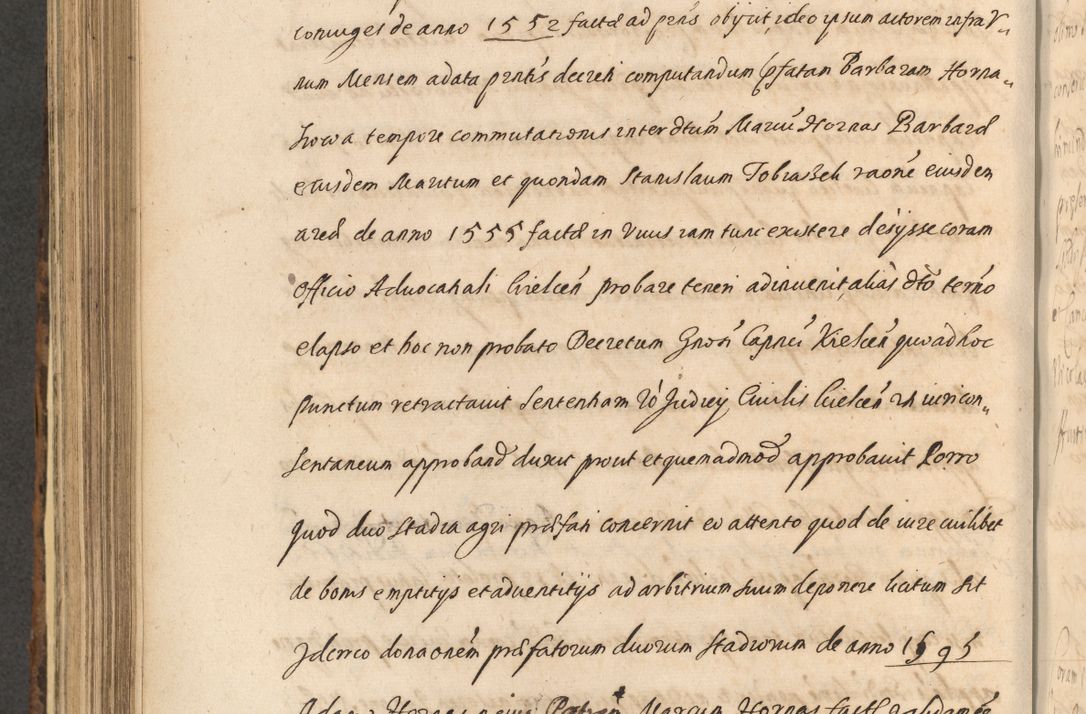 coniuges de anno 1552 factæ ad præns obijcit, ideo ipsum actorem infra V„
num Mensem a data prntis decreti computandum pfatam Barbaram Horna„
howa tempore commutationis inter dtum Marcu Hornas Barbaræ
eiusdem Maritum et quondam Stanislaum Tobiaszek raone eiusdem
areæ de anno 1555 factæ in Vivis iam tunc existere desijsse coram
Officio Advocatiali Kielcen probare teneri adinvenit, alias dto termo
elapso et hoc non probato Decretum Gnosi Capnei Kielcen quoad hoc
punctum retractavit Sententiam Judicij Civilis Kielcen iuri con„
sentaneum approband duxit prout et quemadmod approbavit Porro
quod duo Stadia agri præfati concernit eo attento quod de iure cuilibet
de bonis emptitijs et adventitijs ad arbitrium suum deponere licitum sit
Idcirco donaonem præfatorum duorum Stadiorum de anno 1595
Hornas Marcum Hornas